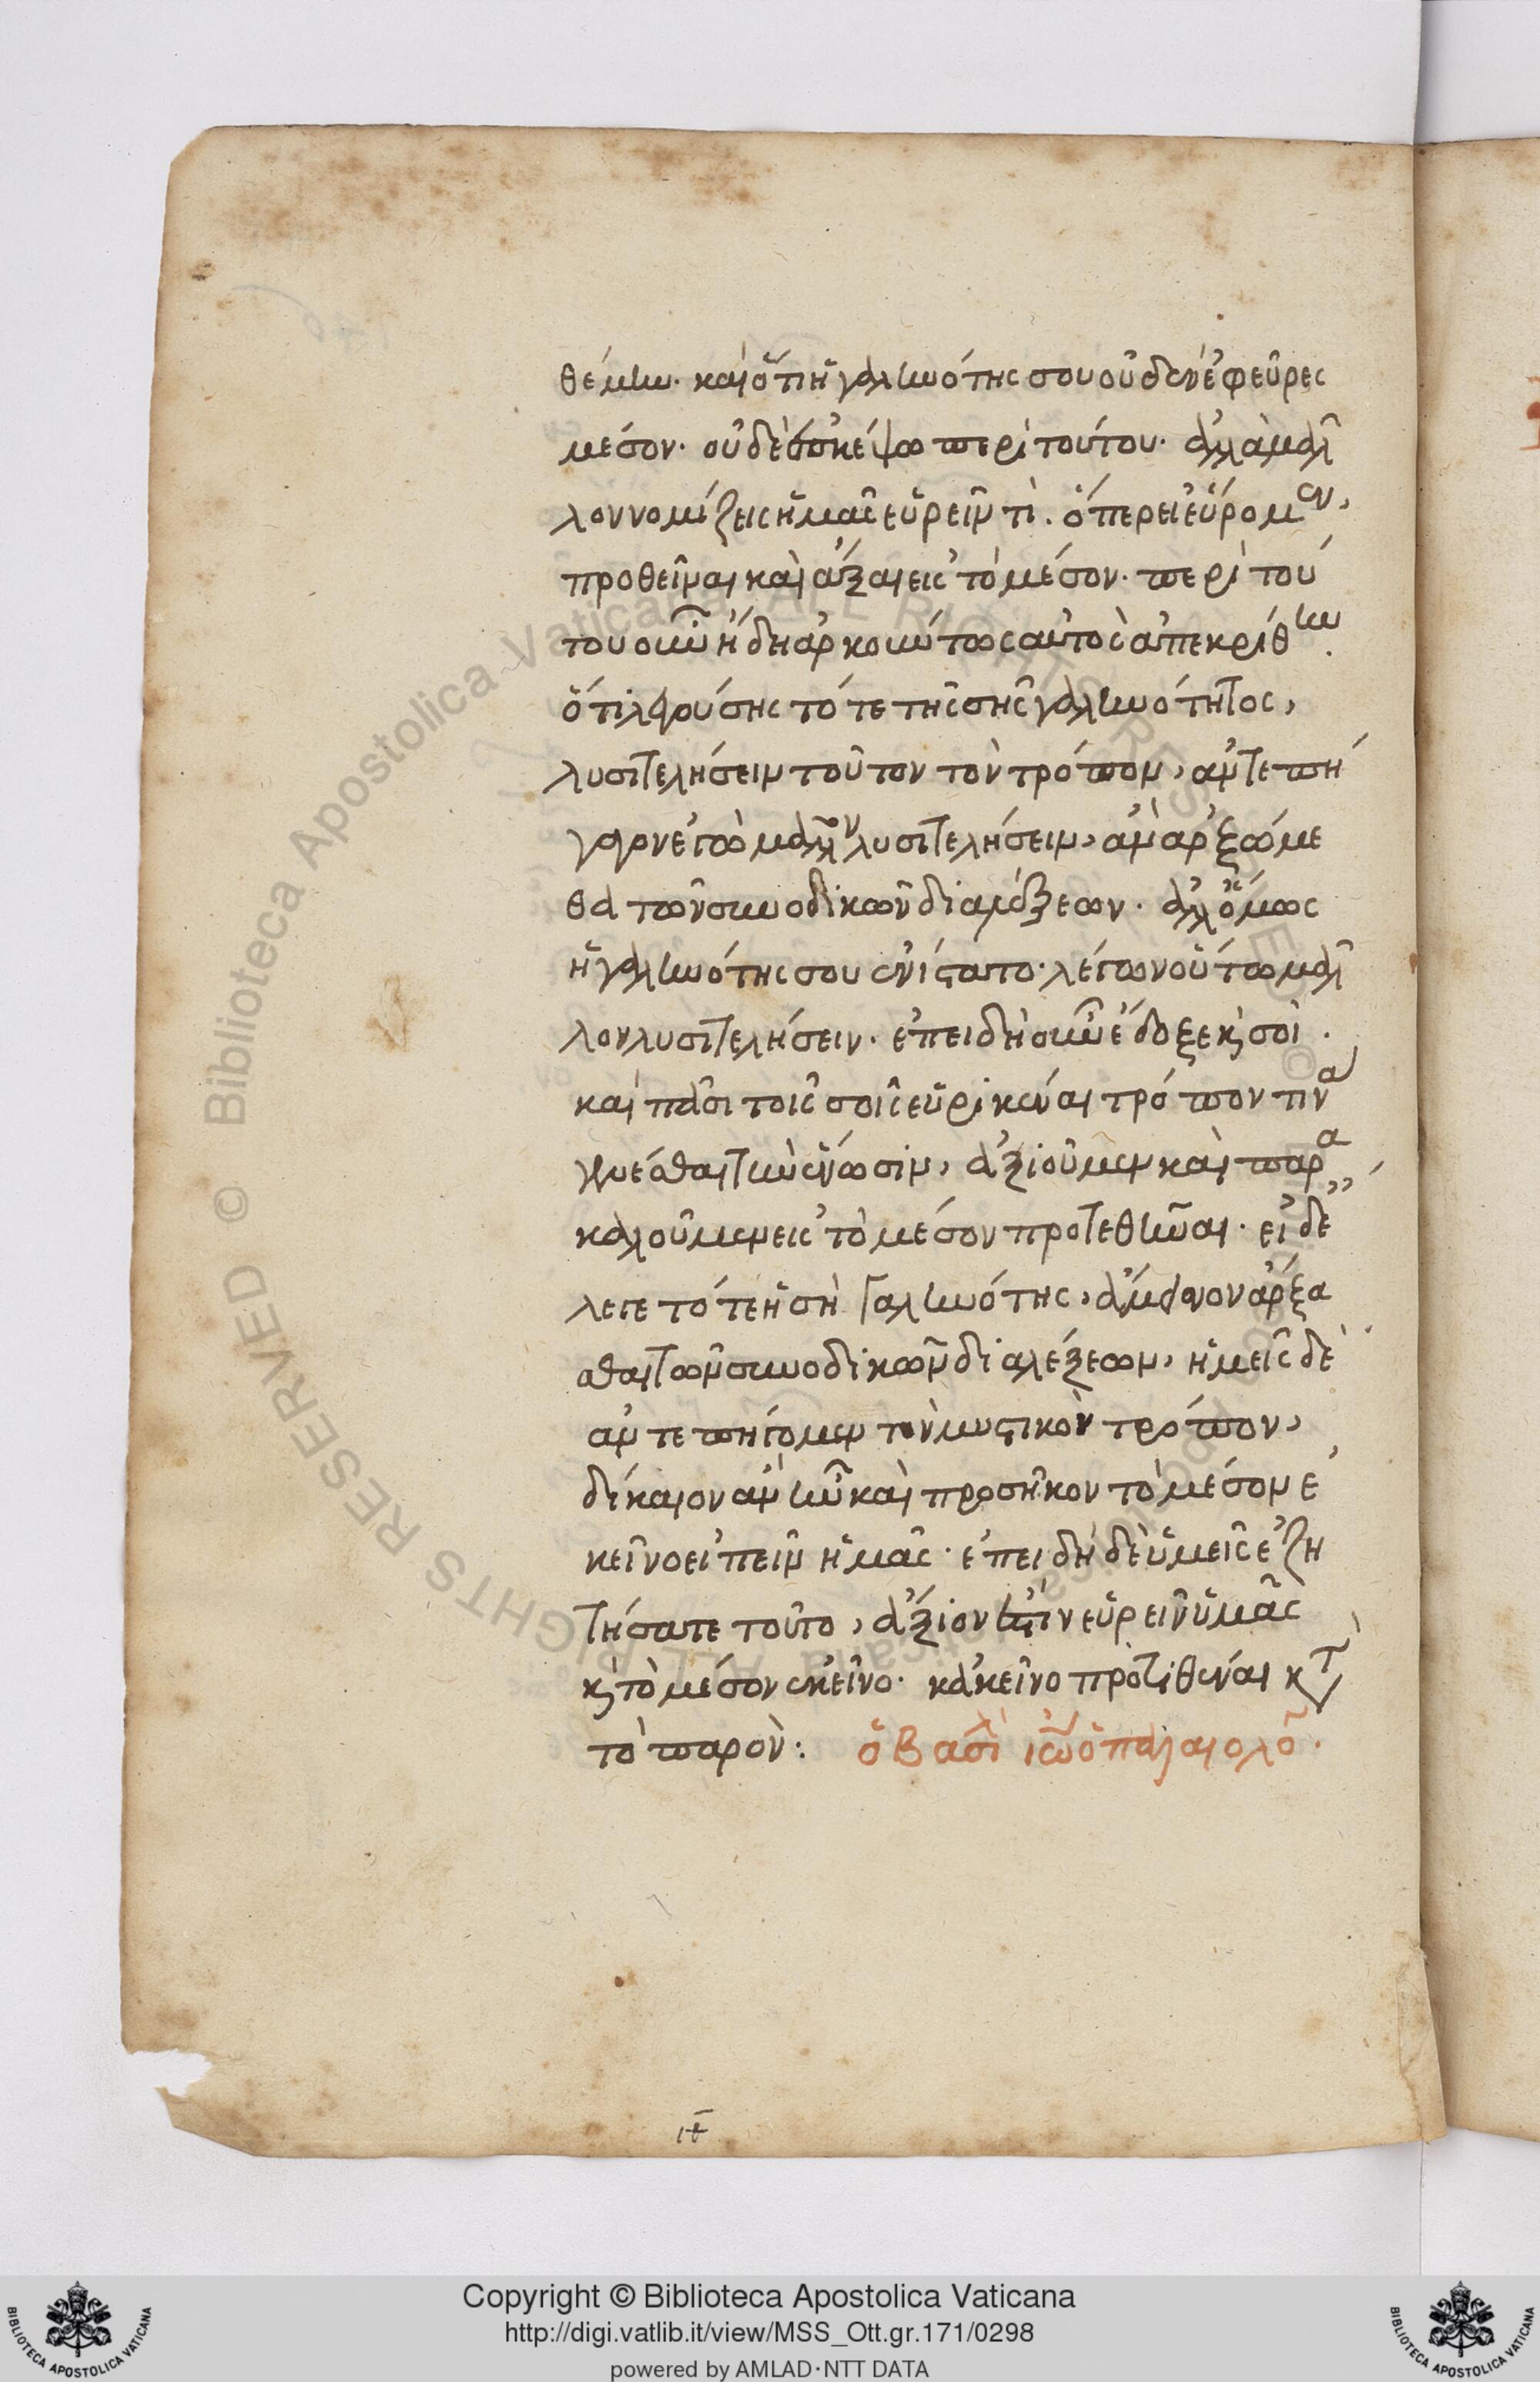 θέμην. καὶ ὅτι ἡ γαληνότης σου οὐδὲν ἐφεῦρες
μέσον. οὐδὲ σκέψω περὶ τούτου. ἀλλὰ μᾶλ
λον νομίζεις ἡμᾶς εὑρεῖν τί. ὅπερ εἰ εὕρομεν,
προθεῖναι καὶ ἄξαι εἰς τὸ μέσον. περὶ τού
του οὖν ἤδη ἀρκούντως αὐτὸς ἀπεκρίθην.
ὅτι λεγούσης τότε τῆς σῆς γαληνότητος,
λυσιτελήσειν τοῦτον τὸν τρόπον, ἀντεπή
γαγον ἐγὼ μᾶλλον λυσιτελήσειν, ἂν ἀρξώμε
θα τῶν συνοδικῶν διαλέξεων. ἀλλ' ὅμως
ἡ γαληνότης σου ἐνίστατο. λέγων οὕτω μᾶλ
λον λυσιτελήσειν. ἐπειδὴ οὖν ἔδοξε κ σοὶ.
καὶ πᾶσι τοῖς σοῖς εὑρικέναι τρόπον τινὰ
γενέσθαι τὴν ἕνωσιν, ἀξιοῦμεν καὶ παρα
καλοῦμεν εἰς τὸ μέσον προτεθῆναι. εἰ δὲ ἔ
λεγε τότε ἡ σὴ Γαληνότης, ἄμεινον ἄρξα
σθαι τῶν συνοδικῶν διαλέξεων, ἡμεῖς δὲ
ἀντεπήγομεν τὸν μυστικὸν τρόπον,
δίκαιον ἂν ἦν καὶ προσῆκον τὸ μέσον ἐ
κεῖνο εἰπεῖν ἡμᾶς. ἐπειδὴ δὲ ὑμεῖς ἐζη
τήσατε τοῦτο, ἄξιόν ἐστιν εὑρεῖν ὑμᾶς
κ τὸ μέσον ἐκεῖνο. κἀκεῖνο προτιθέναι κτ
τὸ παρόν: ὁ βασιλ ἰω ὁ παλαιολο.
ιε
Copyright © Biblioteca Apostolica Vaticana
http://digi.vatlib.it/view/MSS_Ott.gr.171/0298
powered by AMLAD·NTT DATA
BIBLIOTECA APOSTOLICA VATICANA
BIBLIOTECA APOSTOLICA VATICANA
© Biblioteca Apostolica Vaticana ALL RIGHTS RESERVED